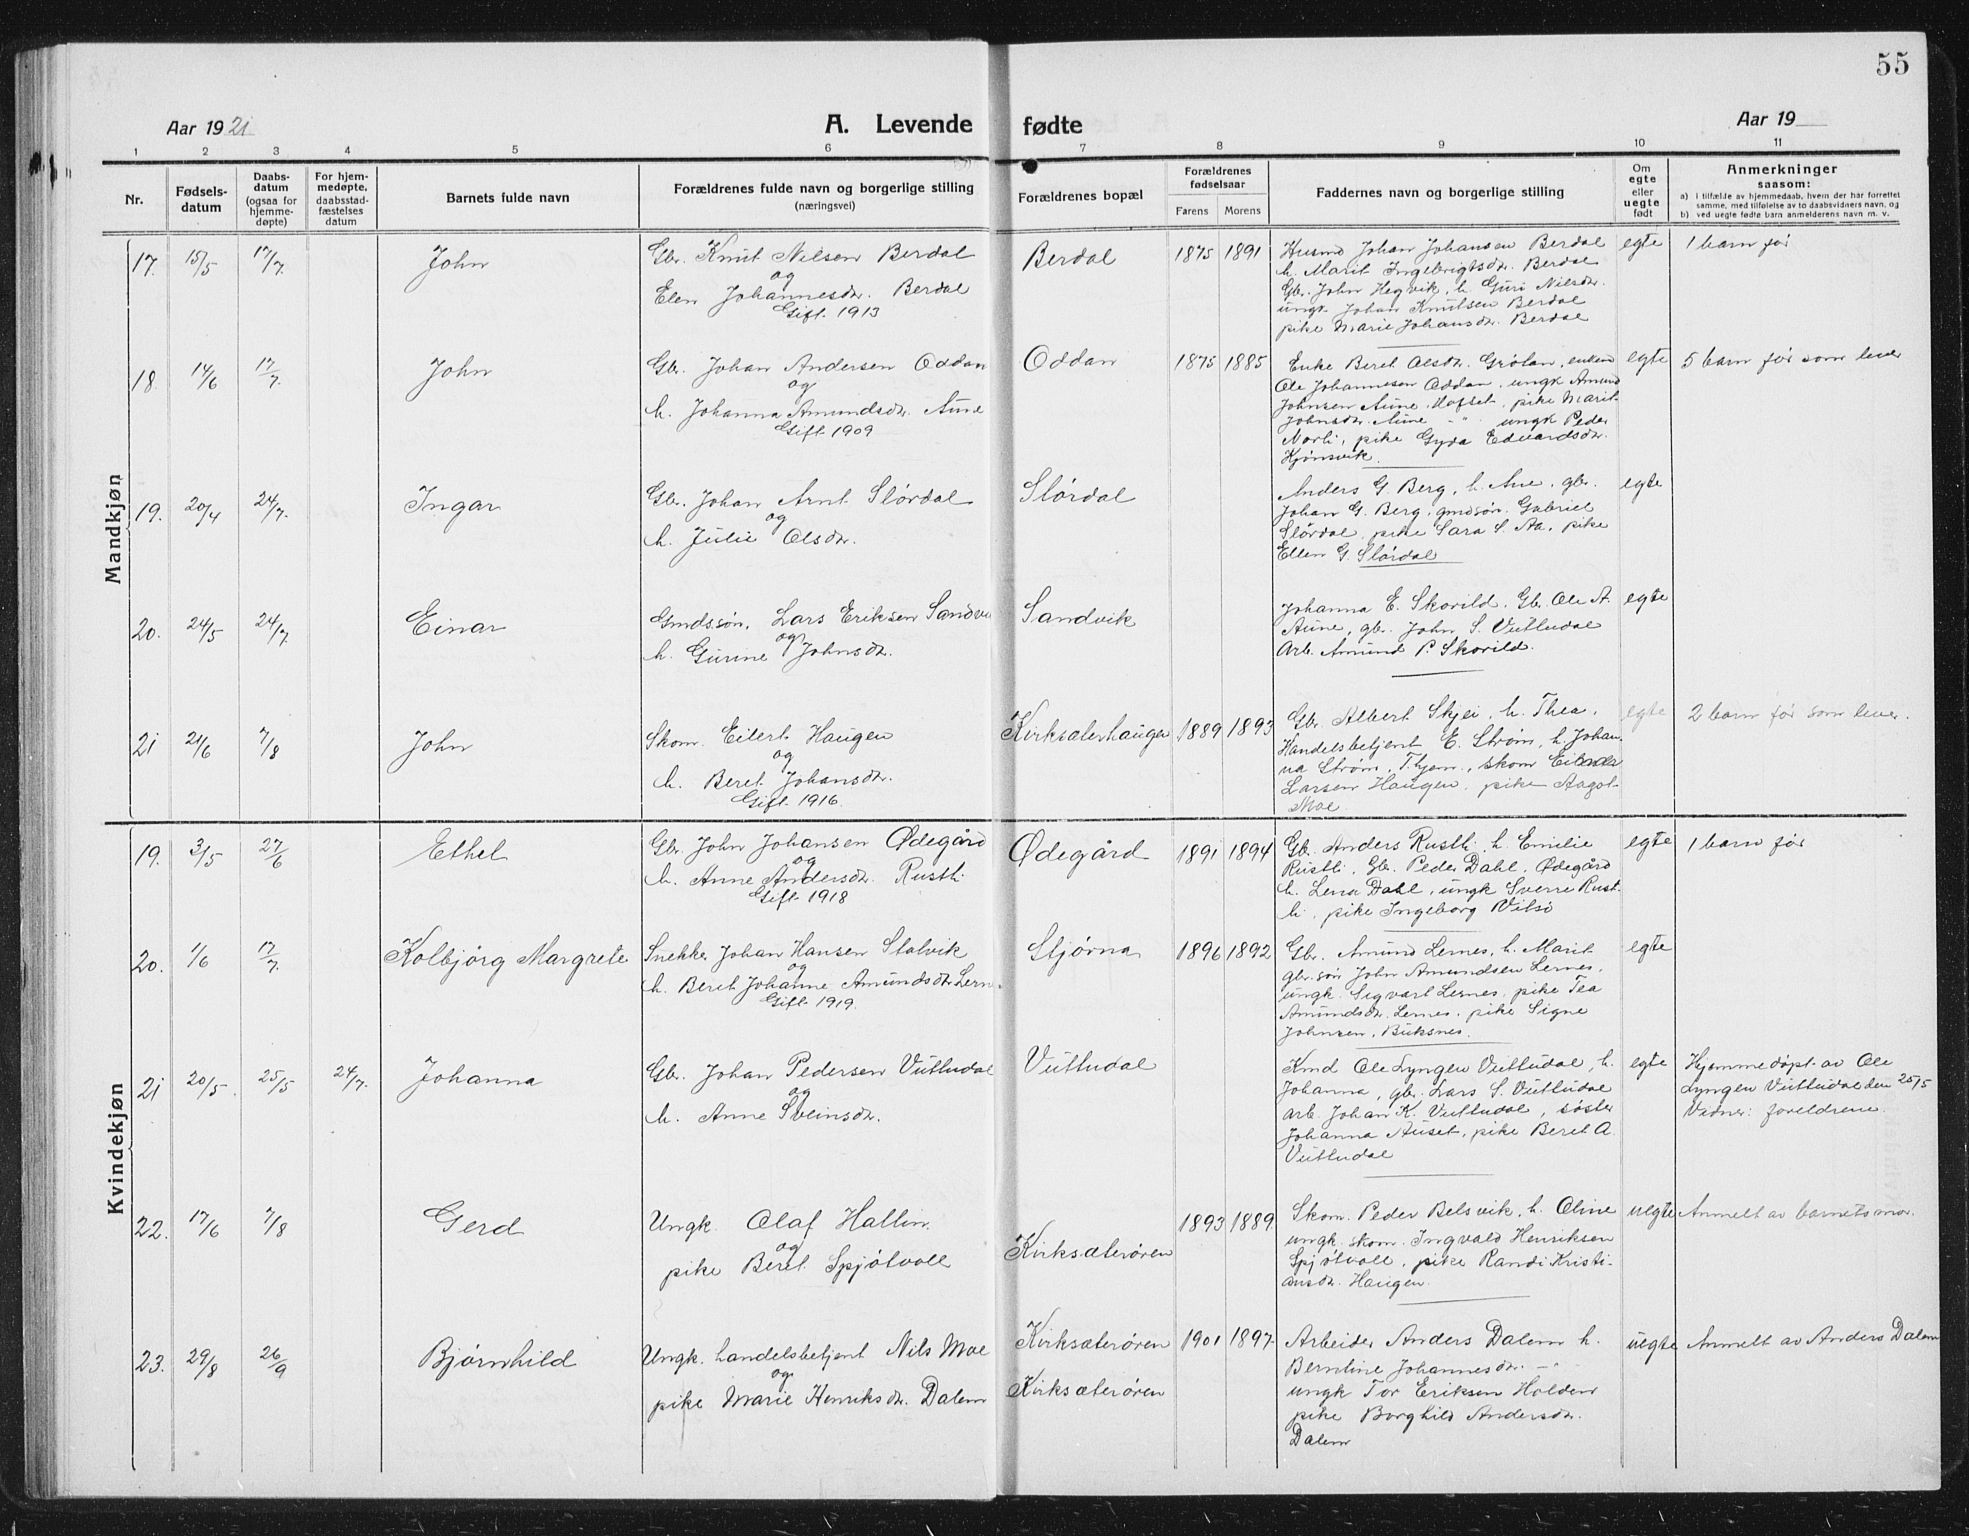 55
Aar 1921
A. Levende fødte
Aar 19
1 2 3 4 5 6 7 8 9 10 11
Nr.
Fødsels-
datum
Daabs-
datum
(ogsaa for
hjemme-
døpte)
For hjem-
medøpte,
daabsstad-
fæstelses
datum
Barnets fulde navn
Forældrenes fulde navn og borgerlige stilling
(næringsvei)
Forældrenes bopæl
Forældrenes
fødselsaar
Farens Morens
Faddernes navn og borgerlige stilling
Om
egte
eller
uegte
født
Anmerkninger
saasom:
a) i tilfælde av hjemmedaab, hvem der har forrettet
samme, med tilføielse av to daabsvidners navn, og
b) ved uegte fødte barn anmelderens navn m. v.
Mandkjøn
17. 15/5 17/7. John
Gbr. Knut Nilsen Berdal
og
Elen Johannesdr. Berdal
Gift 1913
Berdal 1875 1891
Husmd Johan Johansen Berdal
h. Marit Ingebrigtsdr. Berdal
Gbr. John Hegvik, h. Guri Nilsdr.
ungk Johan Knutsen Berdal
pike Marie Johansdr. Berdal
egte 1 barn før
18. 14/6 17/7. John
Gbr. Johan Andersen Oddan
og
h. Johanna Amundsdr. Aune
Gift 1909
Oddan 1875 1885
Enke Beret Olsdr. Grötan, enkem
Ole Johannesen Oddan, ungk Amund
Johnsen Aune, Hofset, pike Marit
Johnsdr. Aune - " - ungk Peder
Norli, pike Gyda Edvardsdr.
Hjönsvik.
egte 5 barn før som lever
19. 20/4 24/7. Ingar
Gbr. Johan Arnt Slørdal
og
h. Julie Olsdr.
Slørdal
Anders G. Berg, h. Ane, gbr.
Johan G. Berg, gmdsøn. Gabriel
Slørdal, pike Sara S. Aa, pike
Ellen G. Slørdal
egte
20. 24/5 24/7. Einar
Gmdssøn. Lars Eriksen Sandv
og
h. Gurine Johnsdr.
Sandvik
Johanna E. Skorild. Gb. Ole A.
Aune, gbr. John S. Vuttudal
Arb. Amund P. Skorild.
egte
21 21/6 7/8 John
Skom. Eilert Haugen
og
h. Beret Johansdr.
Gift 1916.
Kirksæterhaugen 1889 1893
Gbr. Albert Skjei, h. Thea,
Handelsbetjent E. Strøm, h. Johan-
na Strøm, Tjem., skom
Larsen Haugen, pike Aagot
Moe.
egte 2 barn før som lever.
Kvindekjøn
19. 3/5 27/6 Ethel
Gbr. John Johansen Ødegård
og
h. Anne Andersdr. Rustli
Gift 1918
Ødegård 1891 1894
Gb. Anders Rustli, h. Emilie
Rustli, Gb. Peder Dahl, Ødegård
h. Lena Dahl, ungk Sverre Rust-
li, pike Ingeborg Vilsö
egte 1 barn før
20. 1/6 17/7. Kolbjørg Margrete
Snekker Johan Hansen Stalvik
og
h. Beret Johanne Amundsdr Lern
Gift 1919.
Stjørna 1896 1892
Gb. Amund Lernes, h. Marit
gbr.søn John Amundsen Lernes,
ungk. Sigvart Lernes, pike Tea
Amundsdr. Lernes, pike Signe
Johnsen, Buksnes.
egte
21 20/5 25/5 24/7. Johanna
Gbr. Johan Pedersen Vuttudal
og
h. Anne Sveinsdr.
Vuttudal
Kmd Ole Lyngen Vuttudal, h.
Johanna, gbr. Lars S. Vuttudal
arb. Johan K. Vuttudal, søster
Johanna Auset, pike Beret A.
Vuttudal
egte
Hjemmedøpt av Ole
Lyngen Vuttudal den 25/5
Vidner: foreldrene
22. 17/6 7/8 Gerd
Ungk. Olaf Hallin
og
pike Beret Spjøtvoll
Kirksæterøren 1893 1889
Skom. Peder Belsvik, h. Oline
ungk. skom. Ingvald Henriksen
Spjøtvoll, pike Randi Kristi-
ansdr. Haugen.
uegte Anmelt av barnets mor.
23. 29/8 26/9 Bjørnhild
Ungk. handelsbetjent Nils Moe
og
pike Marie Henriksdr. Dalem
Kirksæterøren
Kirksæterøren
1901 1897
Arbeider Anders Dalem h.
Berntine Johannesdr. - " -
ungk Tor Eriksen Holden
pike Borghild Andersdr.
Dalem
uegte Anmelt av Anders Dalem